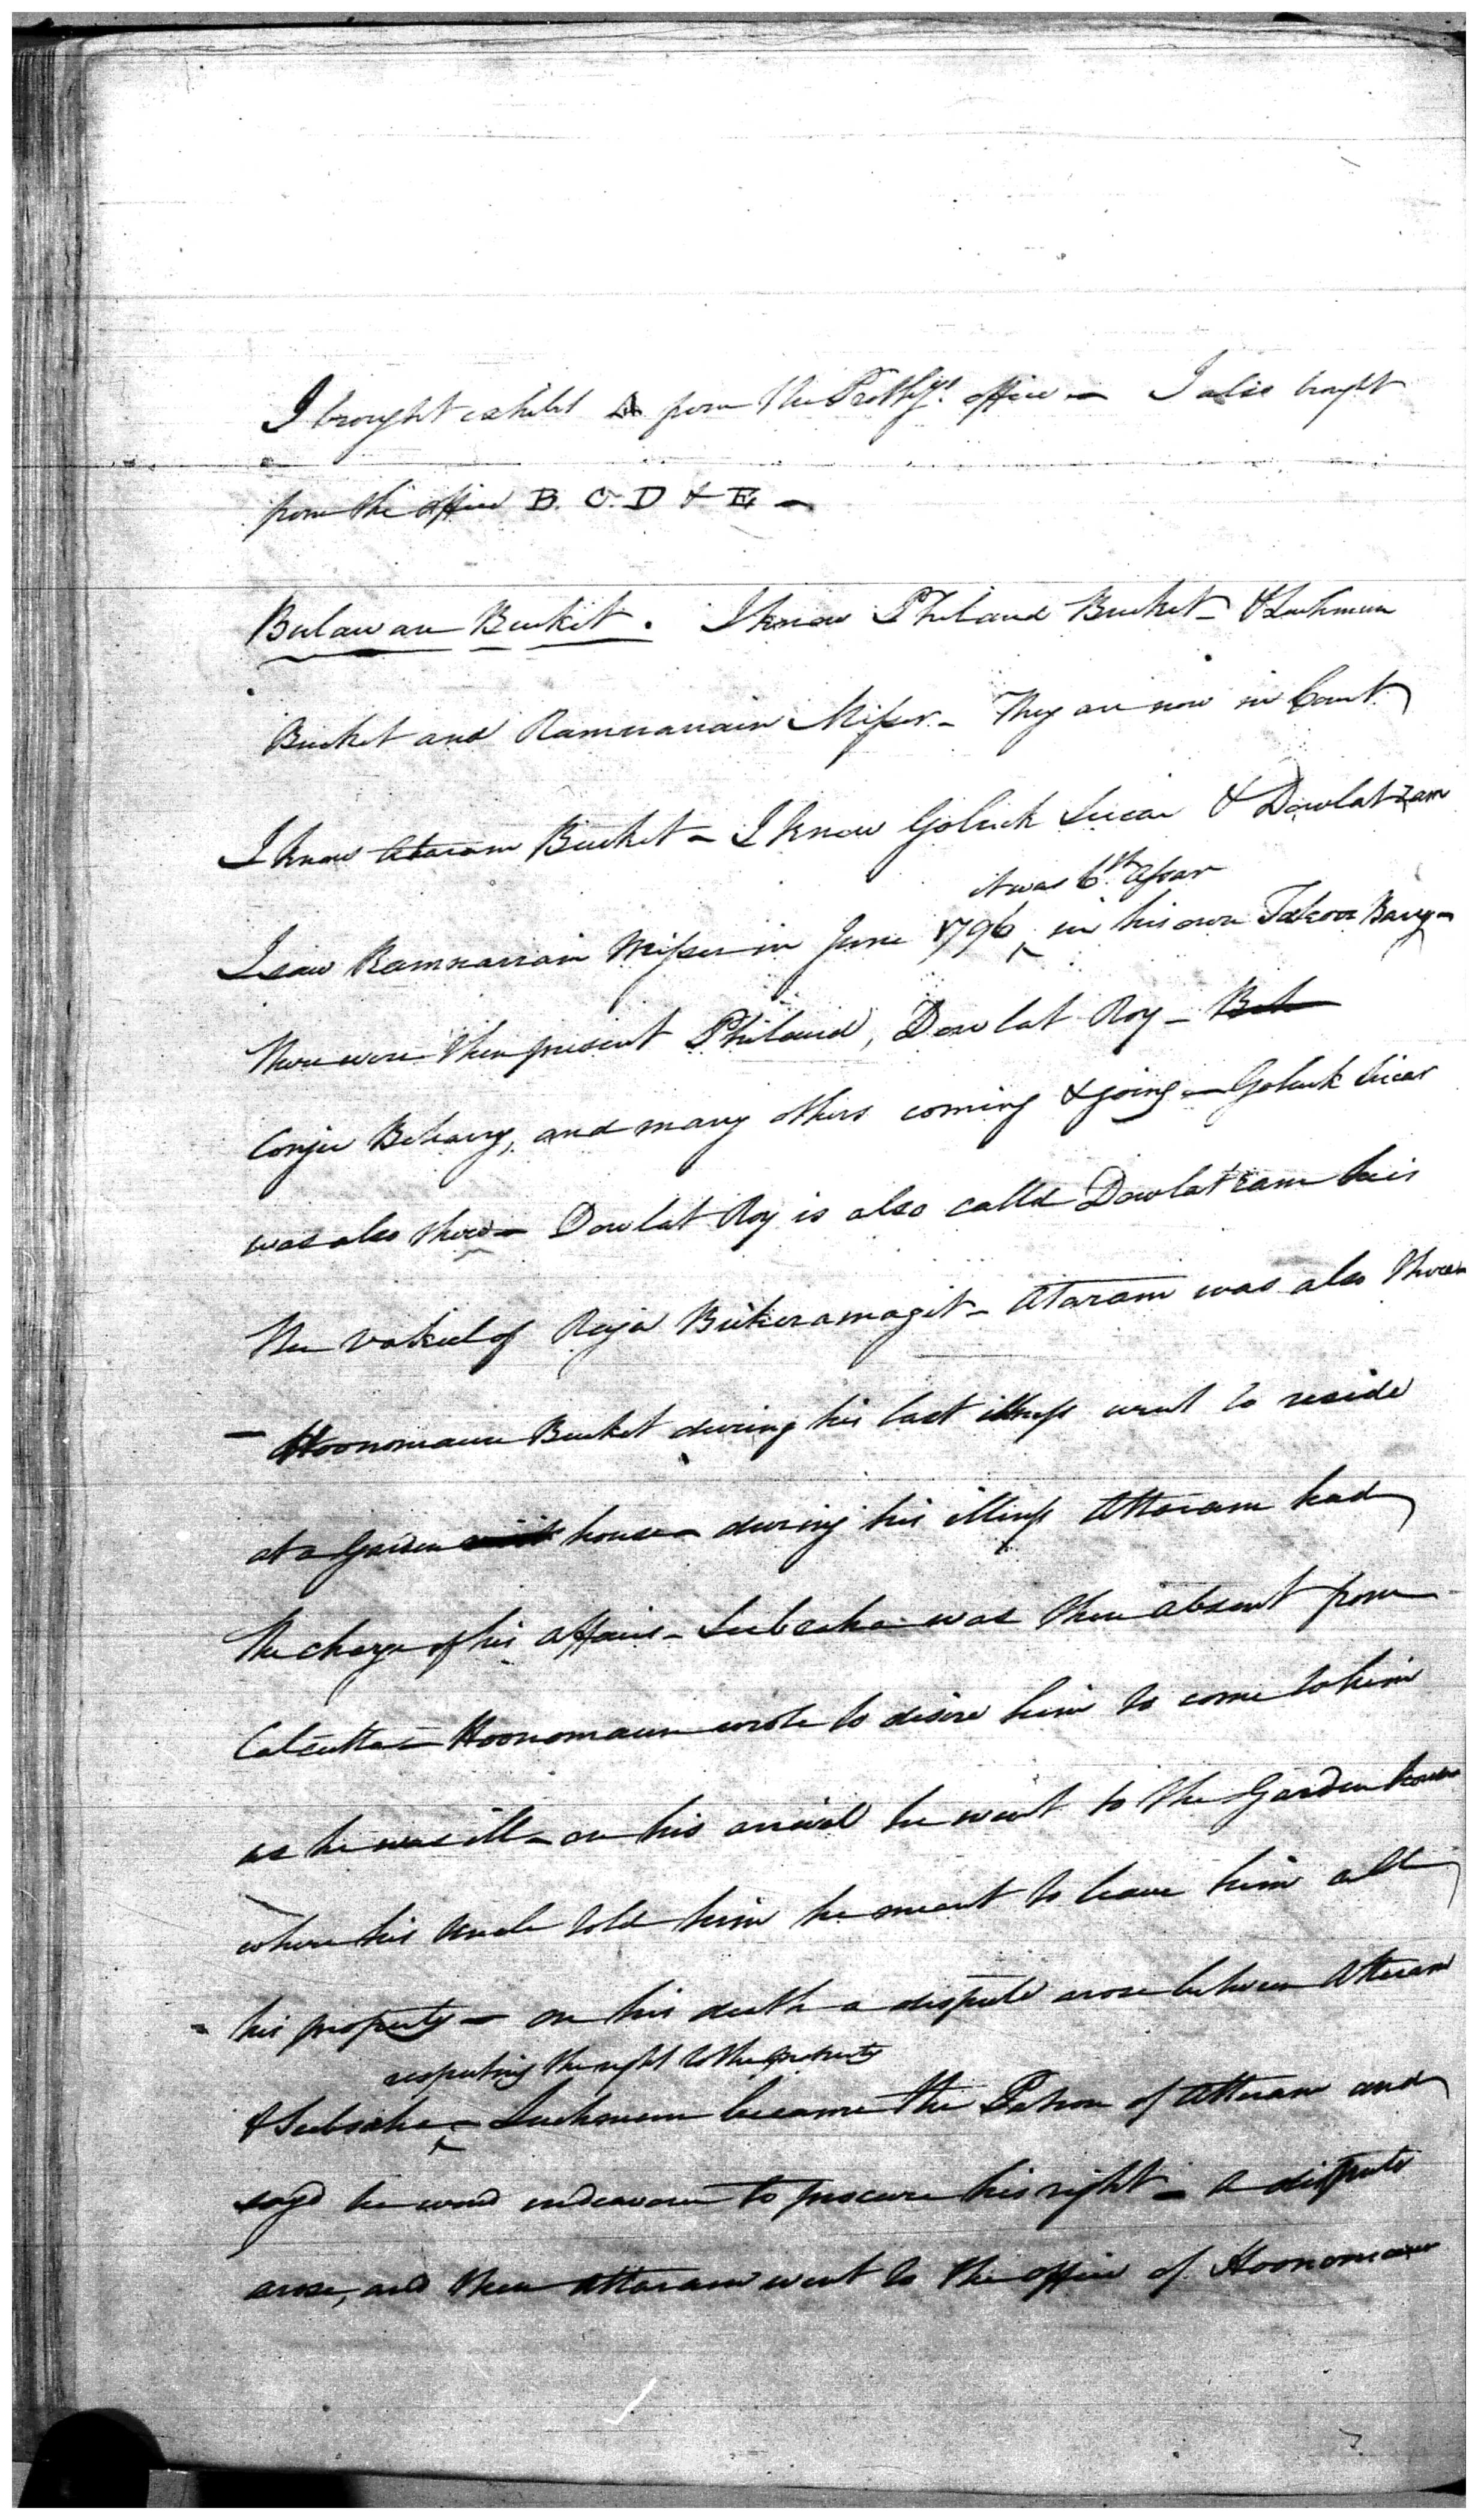 I brought exhibit A from the Prothy's. office — I also brought
from the office B. C. D & E —
Bulawan Buckit. I know Philaud Bucket — & Luchmun
Bucket and Ramnarrain Misser — They are now in Court
I know Ataram Bucket — I know Goluck Sircar & Dowlatram
it was 6th. Assar
I saw Ramnarrain Misser in June 1796 in his own Takoor Barry —
There were then present Philaud, Dowlat Roy —
Conjee Beharry, and many others coming & going — Goluck Sircar
was also there — Dowlat Roy is also called Dowlatram his
the vakeel of Raja Bickeramagit — Ataram was also there
— Hoonomaun Bucket during his last illness went to reside
at a Garden house — during his illness Attaram had
the charge of his affairs — Seebsaha was then absent from
Calcutta — Hoonomaun wrote to desire him to come to him
as he was ill — on his arrival he went to the Garden house
where his Uncle told him he meant to leave him all
his property — on his death a dispute arose between Atteram
respecting the right to the property
& Seebsaha — Luchmun became the Patron of Atteram and
sayd he woud endeavour to procure his right — a dispute
arose, and then Attaram went to the office of Hoonomaun